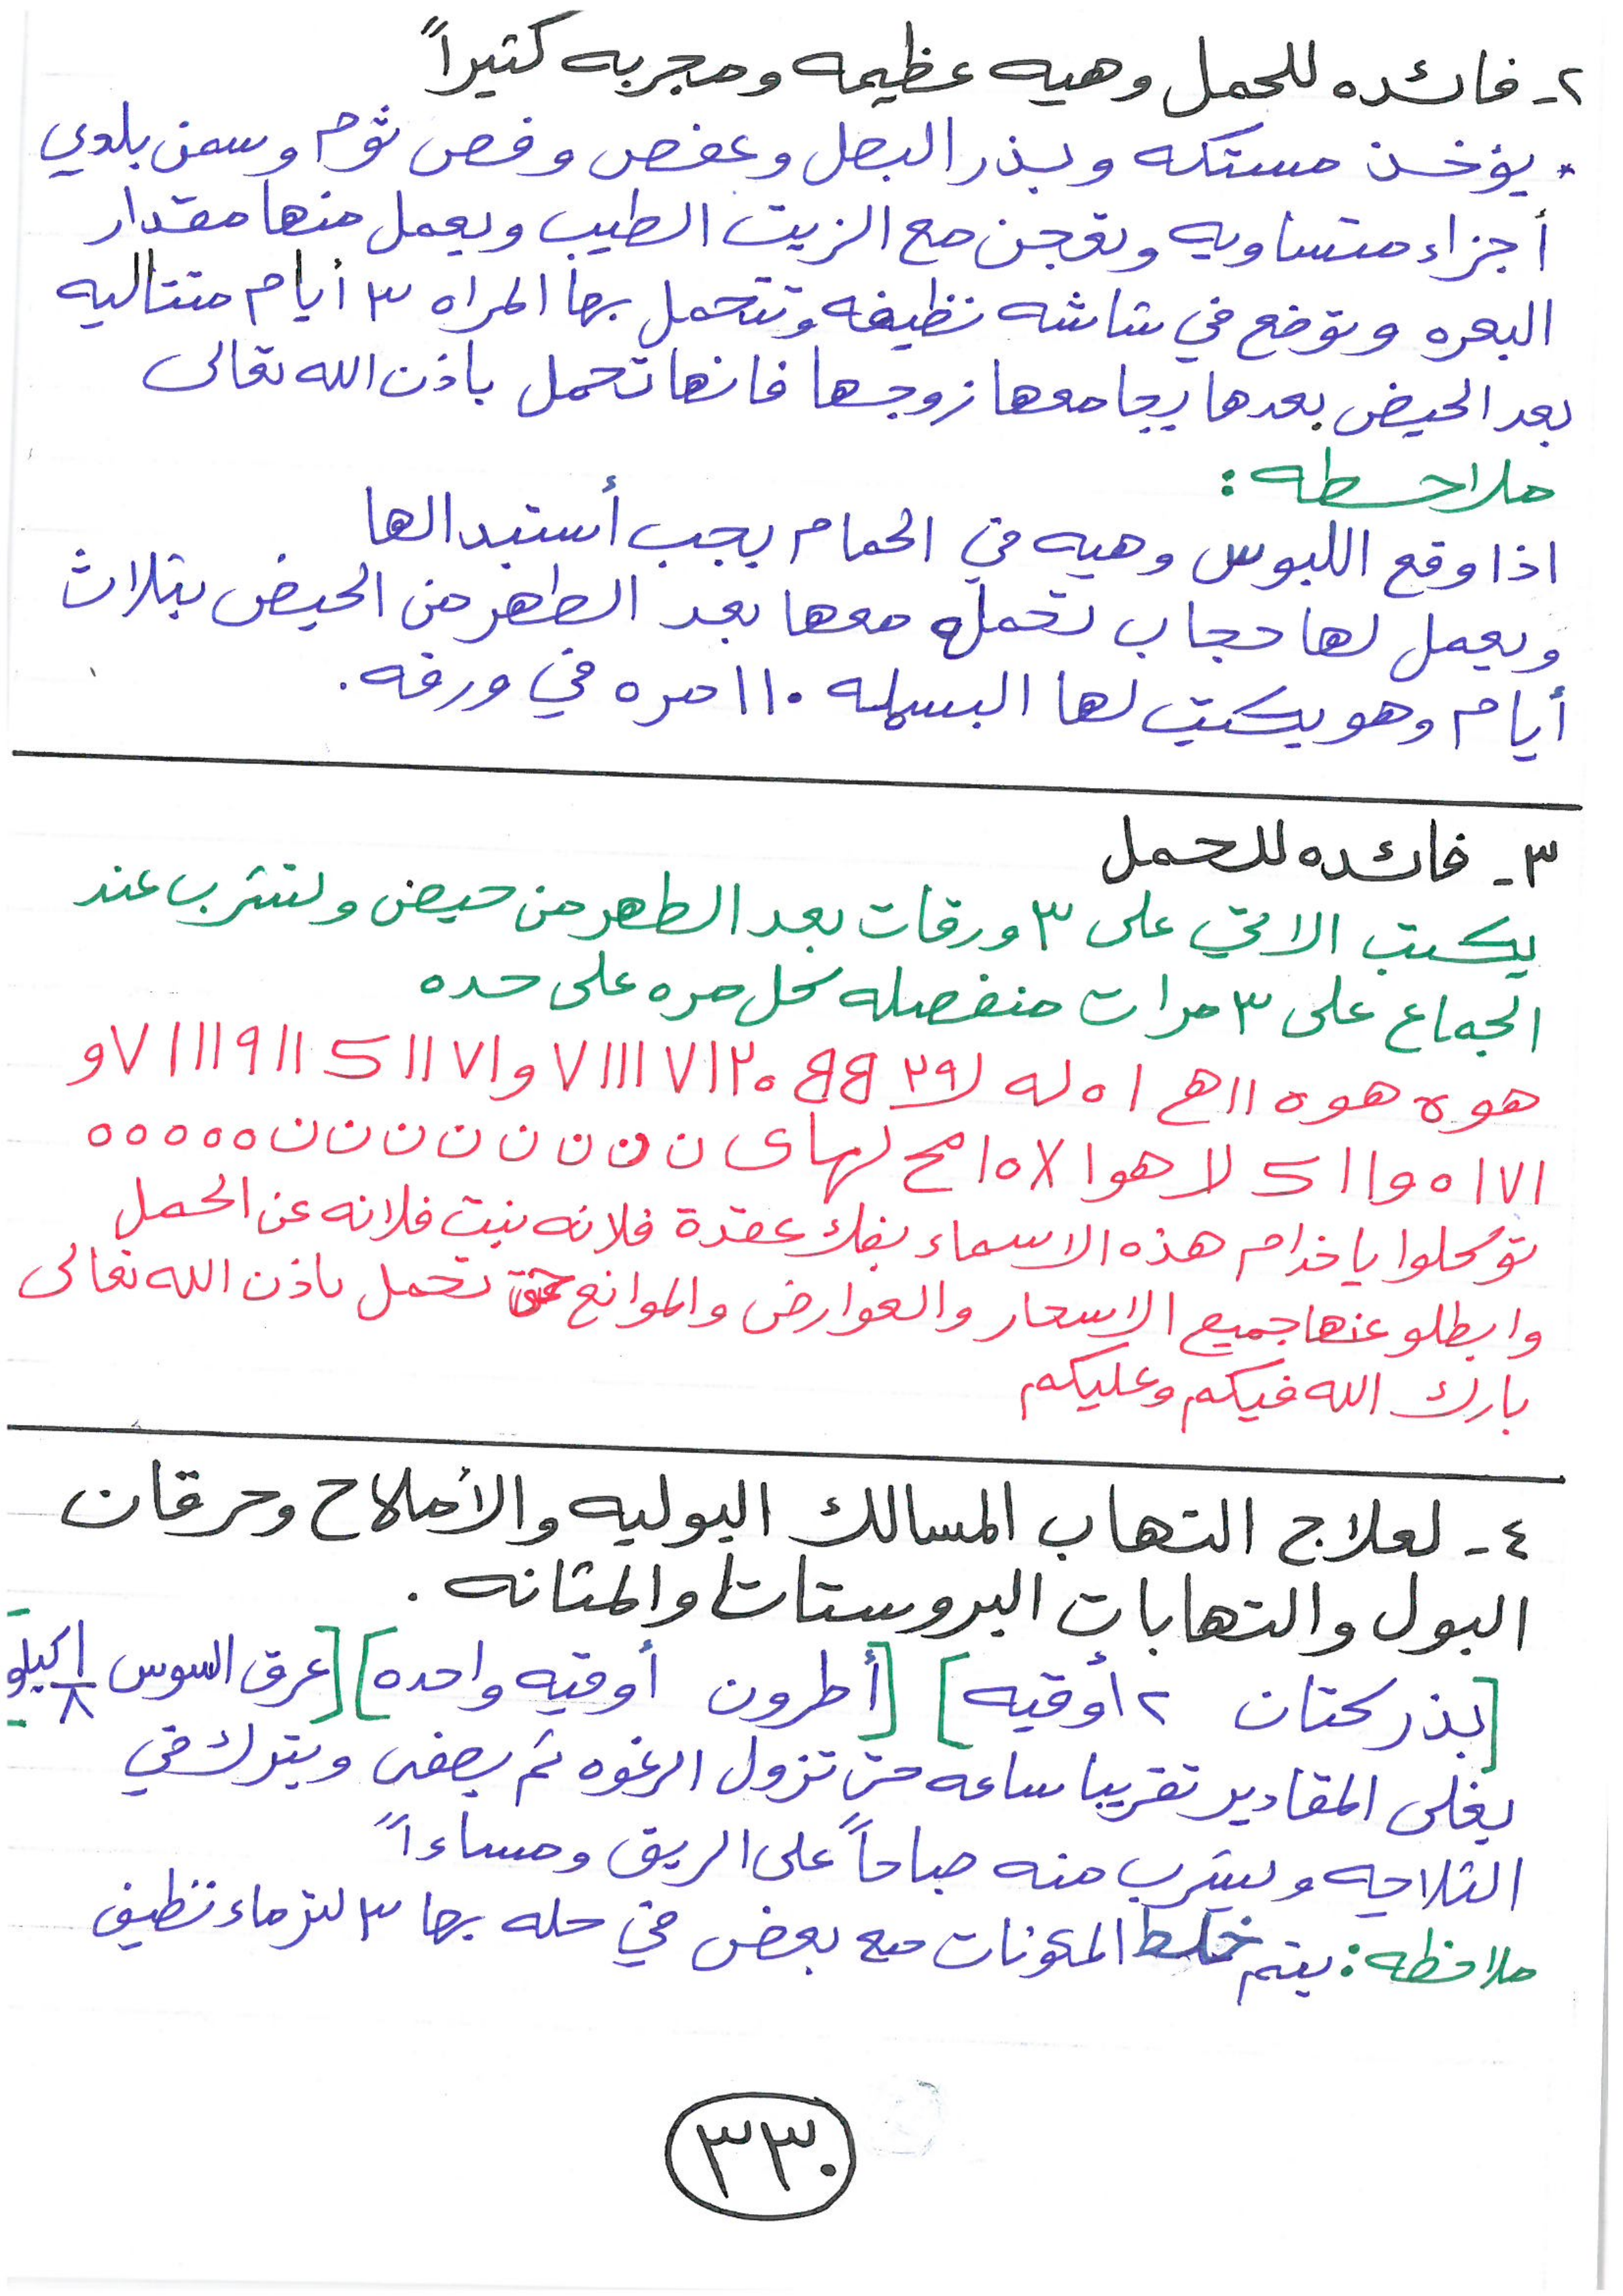 ٢- فائده للحمل وهيه عظيمه ومجربه كتيراً
* يؤخذ مستكه وبذر البصل وعفص وفص ثوم وسمن بلدي
أجزاء متساويه وتعجن مع الزيت الطيب ويعمل منها مقدار
البعره وتوضع في شاشه نظيفه وتتحمل بها المراه ٣ أيام متتاليه
بعد الحيض بعدها يجامعها زوجها فانها تحمل باذن الله تعالى
ملاحظه :
اذا وقع اللبوس وهيه في الحمام يجب أستبدالها
ويعمل لها حجاب تحمله معها بعد الطهر من الحيض بتلاث
أيام وهو يكتب لها البسمله ١١٠ مره في ورقه .
٣- فائده للحمل
يكتب الاتي على ٣ ورقات بعد الطهر من حيض ولتشرب عند
الجماع على ٣ مرات منفصله كل مره على حده
هوه هوه ١١ هـ ١ ٥ له
١٧١ ٥ و١١ لا هوا
توكلوا يا خدام هذه الاسماء بفك عقدة فلانه بنت فلانه عن الحمل
وابطلو عنها جميع الاسحار والعوارض والموانع حتى تحمل باذن الله تعالى
بارك الله فيكم وعليكم
٤- لعلاج التهاب المسالك البوليه والأملاح وحرقان
البول والتهابات البروستاتا والمثانه .
[بذر كتان ٢ أوقيه] [أطرون أوقيه واحده] [عرق السوس ١/٨ كيلو]
يغلى المقادير تقريبا ساعه حتى تزول الرغوه ثم يصفى ويترك في
الثلاجه ويشرب منه صباحاً على الريق ومساءاً
ملاحظه : يتم خلط المكونات مع بعض في حله بها ٣ لتر ماء نظيف
٣٣٠